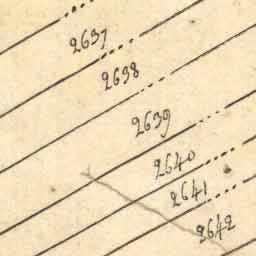 2637
2638
2639
2640
2641
2642